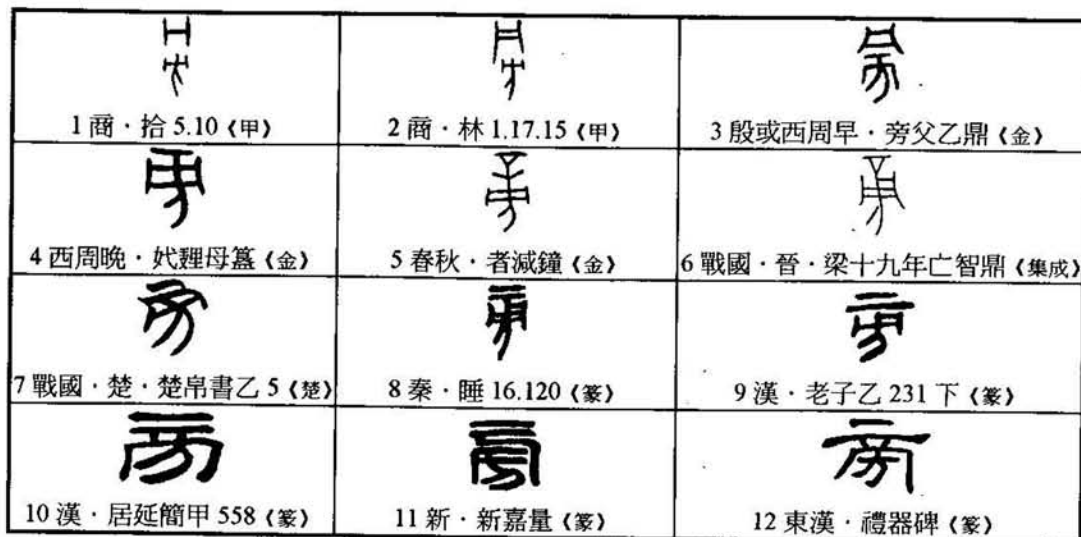 1 商·拾 5.10《甲》
2 商·林 1.17.15《甲》
3 殷或西周早·旁父乙鼎《金》
4 西周晚·妣䵼母簋《金》
5 春秋·者減鐘《金》
6 戰國·晉·梁十九年亡智鼎《集成》
7 戰國·楚·楚帛書乙 5《楚》
8 秦·睡 16.120《篆》
9 漢·老子乙 231 下《篆》
10 漢·居延簡甲 558《篆》
11 新·新嘉量《篆》
12 東漢·禮器碑《篆》